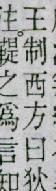 王制西方曰狄
注鞮之爲言知